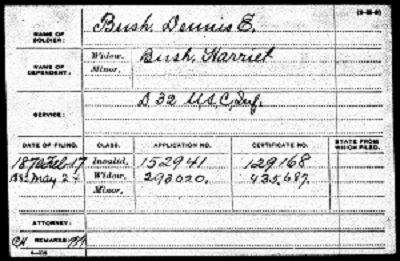 Bush, Dennis E.
NAME OF SOLDIER:
NAME OF DEPENDENT:
Widow, Bush, Harriet
Minor,
SERVICE: D 32 U.S.C. Inf.
DATE OF FILING. CLASS. APPLICATION NO. CERTIFICATE NO. STATE FROM WHICH FILED.
Feb 17 Invalid, 152941 129168
May 24 Widow, 293020. 435,687.
Minor,
ATTORNEY:
REMARKS: